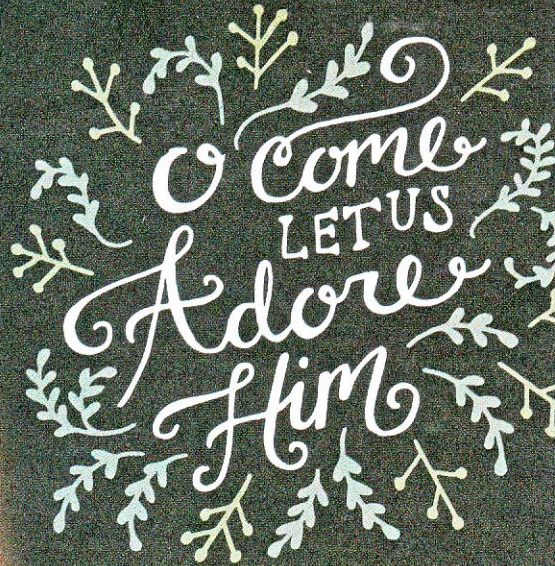 O Come
LET US
Adore
Him